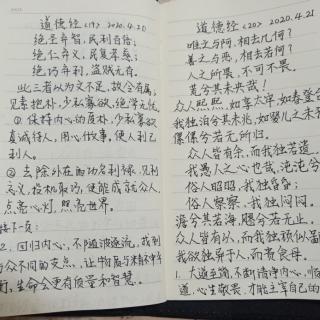 道德经 <19> 2020.4.21
绝圣弃智，民利百倍；
绝仁弃义，民复孝慈；
绝巧弃利，盗贼无有。
此三者以为文不足，故令有属；
见素抱朴，少私寡欲，绝学无忧。
① 保持内心的质朴，少私寡欲
真诚待人，用心做事，使人利己
利人。
② 去除外在的功名利禄，见利
忘义，投机取巧，便能成就众人，
点亮心灯，照亮世界。
接下一页：
2、回归内心，不随波逐流，找到
与众不同的支点，让物质与精神平
衡，生命会更有质量和智慧。
道德经 <20> 2020.4.21
唯之与阿，相去几何？
善之与恶，相去若何？
人之所畏，不可不畏。
荒兮其未央哉！
众人熙熙，如享太牢，如春登台
我独泊兮其未兆，如婴儿之未
傫傫兮若无所归。
众人皆有余，而我独若遗。
我愚人之心也哉，沌沌兮
俗人昭昭，我独昏昏；
俗人察察，我独闷闷。
澹兮其若海，飂兮若无止。
众人皆有以，而我独顽似鄙
我欲独异于人，而贵食母。
1、大道至简，不断清净内心，
道，心生敬畏，才能主宰自己的